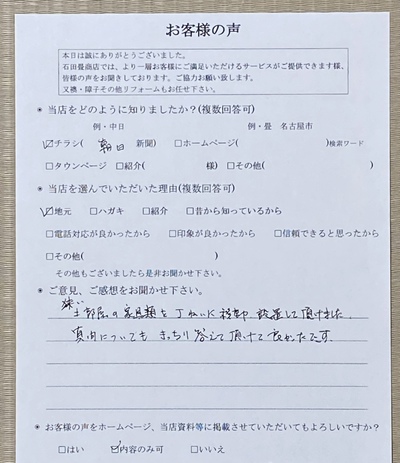 お客様の声
本日は誠にありがとうございました。
石田畳商店では、より一層お客様にご満足いただけるサービスがご提供できます様、
皆様の声をお聞きしております。ご協力お願い致します。
又襖・障子その他リフォームもお任せ下さい。
* 当店をどのように知りましたか?(複数回答可)
例・中日 例・畳 名古屋市
☑チラシ( 朝日 新聞) □ホームページ( )検索ワード
□タウンページ □紹介( 様) □その他( )
* 当店を選んでいただいた理由(複数回答可)
☑地元 □ハガキ □紹介 □昔から知っているから
□電話対応が良かったから □印象が良かったから □信頼できると思ったから
□その他( )
その他もございましたら是非お聞かせ下さい。
* ご意見、ご感想をお聞かせ下さい。
狭い部屋の家具類を丁ねいに移動 して頂けました。
質問についても きっちり答えて頂けて良かったです。
* お客様の声をホームページ、当店資料等に掲載させていただいてもよろしいですか?
□はい ☑内容のみ可 □いいえ